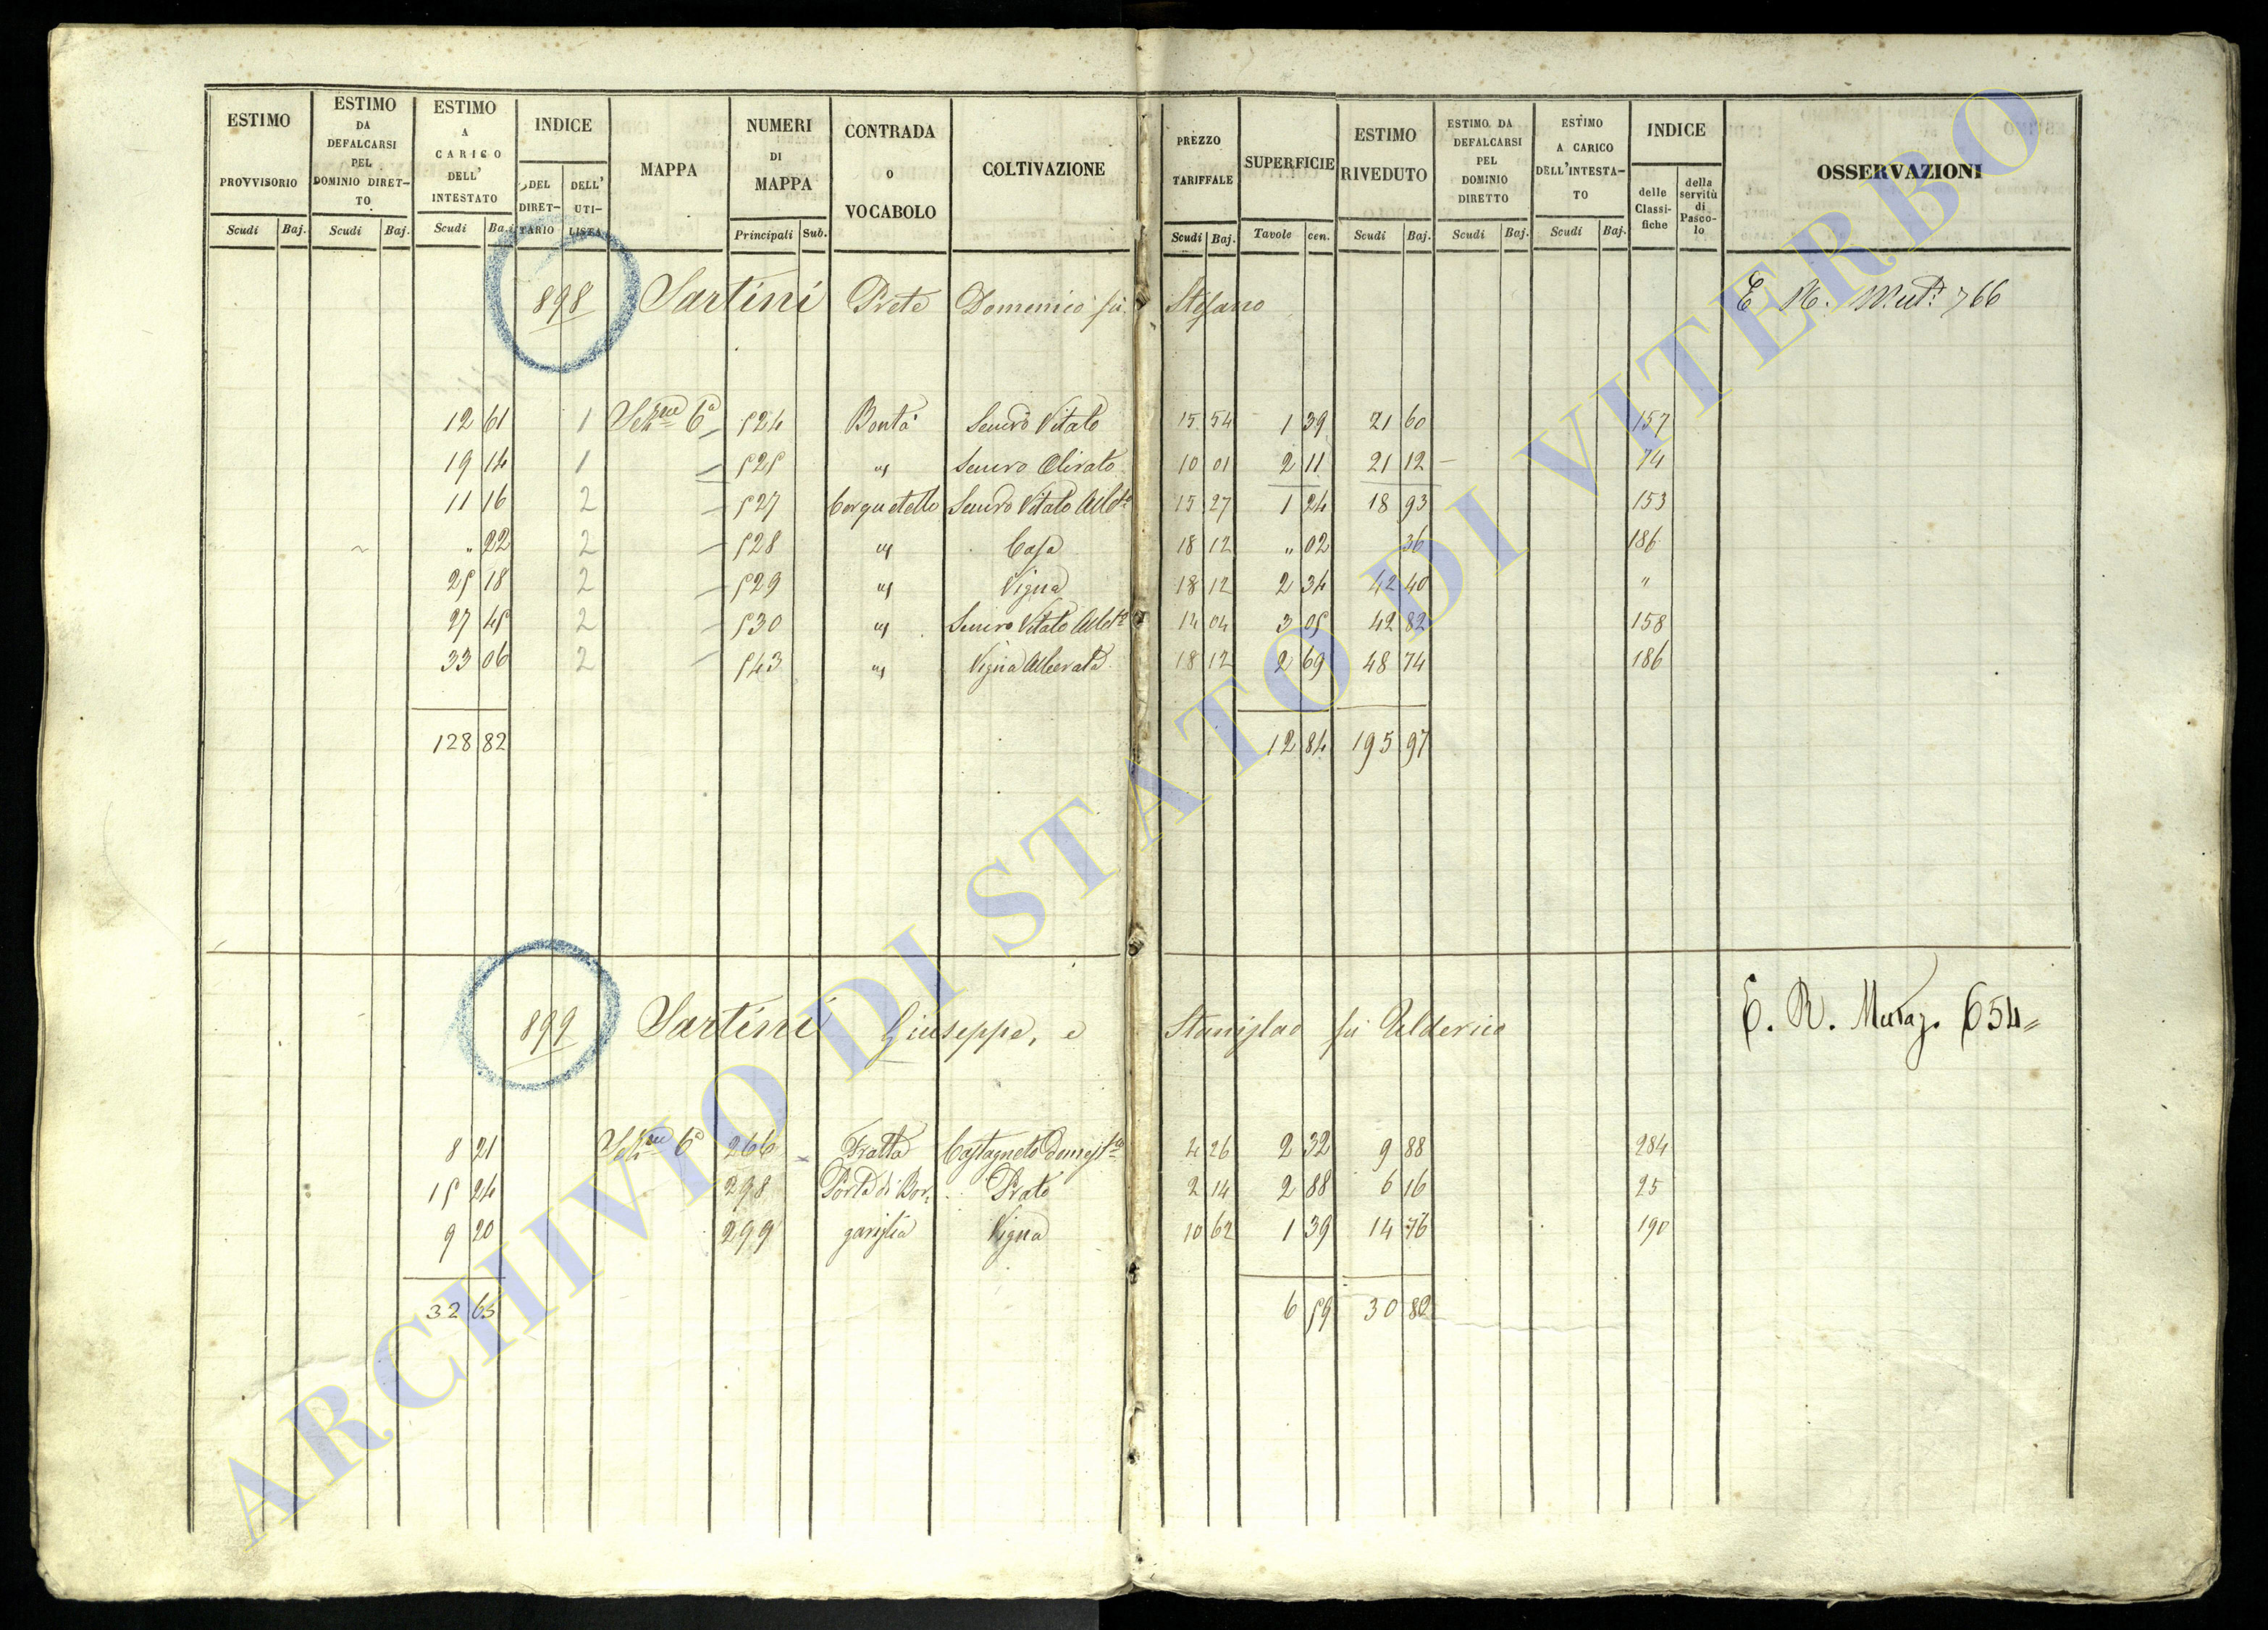 ESTIMO PROVVISORIO Scudi Baj.
ESTIMO DA DEFALCARSI PEL DOMINIO DIRET-TO Scudi Baj.
ESTIMO A CARICO DELL' INTESTATO Scudi Ba.
INDICE DEL DIRET-TARIO DELL' UTI-LISTA
MAPPA
NUMERI DI MAPPA Principali Sub.
CONTRADA O VOCABOLO
COLTIVAZIONE
PREZZO TARIFFALE Scudi Baj.
SUPERFICIE Tavole cen.
ESTIMO RIVEDUTO Scudi Baj.
ESTIMO DA DEFALCARSI PEL DOMINIO DIRETTO Scudi Baj.
ESTIMO A CARICO DELL'INTESTA-TO Scudi Baj.
INDICE delle Classi-fiche della servitù di Pasco-lo
OSSERVAZIONI
898 Sartini Prete Domenico fù Stefano
12 61 1 6ª 524 Bontà Semvo Vitato 15 54 1 39 21 60 157
19 14 1 525 " Semvo Olivato 10 01 2 11 21 12 74
11 16 2 527 Cerquetello Semvo Vitato 15 27 1 24 18 93 153
" 22 2 528 " Casa 18 12 " 02 36 186
25 18 2 529 " Vigna 18 12 2 34 42 40 "
27 45 2 530 " Semvo Vitato 14 04 3 05 42 82 158
33 06 2 543 " Vigna Alberata 18 12 2 69 48 74 186
128 82 12 84 195 97
899 Sartini Giuseppe, e Stanislao fù Ulderico
E. R. Mutaz. 654=
8 21 6ª 266 Fratta Castagneto Domestᶜᵒ 4 26 2 32 9 88 284
15 24 298 Porta di Bor- Prato 2 14 2 88 6 16 25
9 20 299 garistia Vigna 10 62 1 39 14 76 190
32 65 6 59 30 80
ARCHIVIO DI STATO DI VITERBO